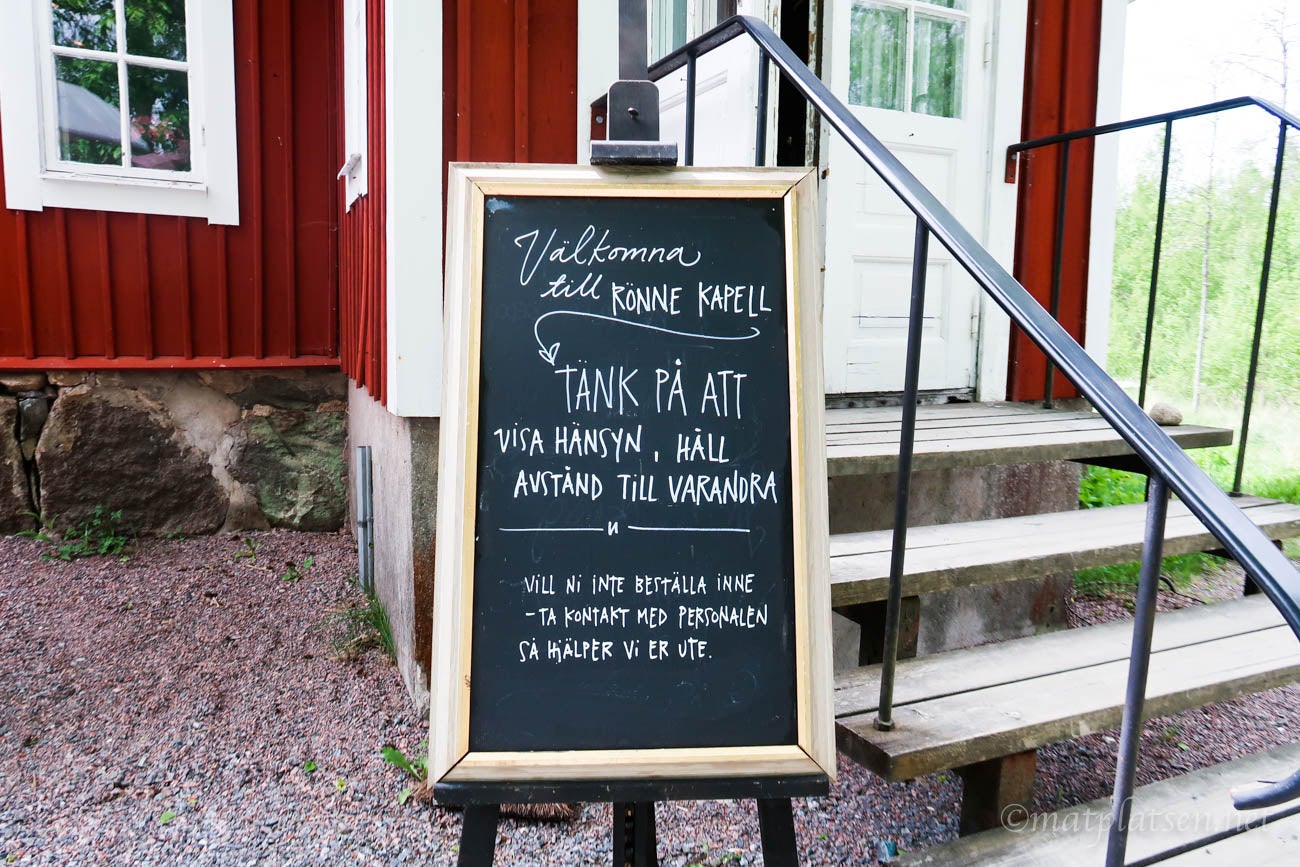 Välkomna
till RÖNNE KAPELL
TÄNK PÅ ATT
VISA HÄNSYN, HÅLL
AVSTÅND TILL VARANDRA
VILL NI INTE BESTÄLLA INNE
- TA KONTAKT MED PERSONALEN
SÅ HJÄLPER VI ER UTE.
©matplatsen.net